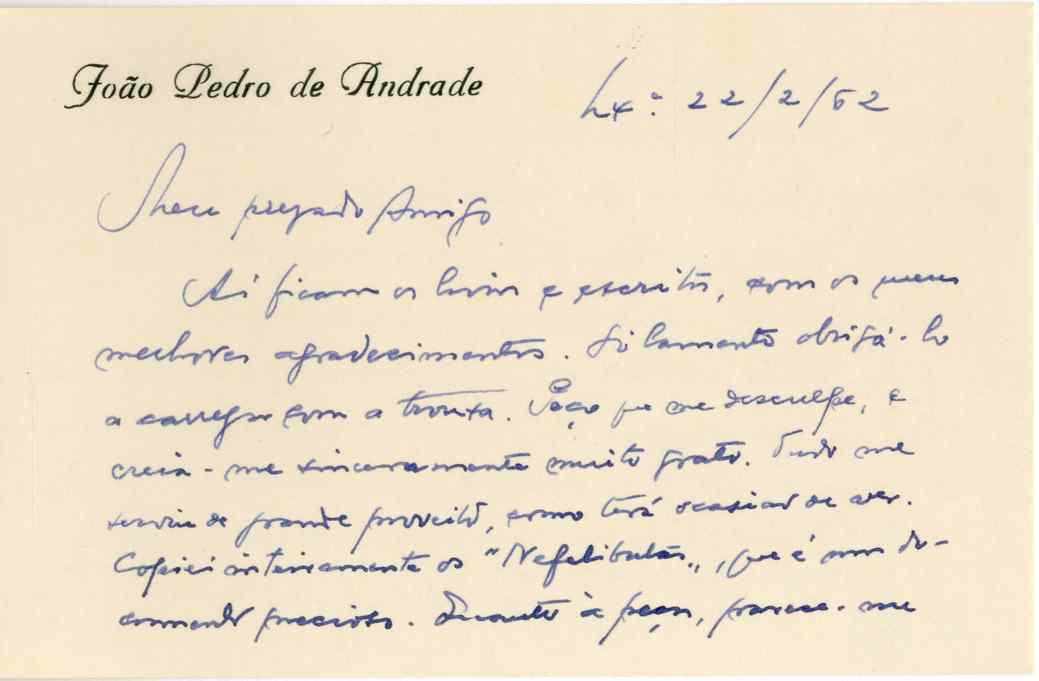 João Pedro de Andrade
Lx.ª 22/2/62
Meu prezado Amigo
Aí ficam os livros e escritos, com os meus
melhores agradecimentos. Só lamento obrigá-lo
a carregar com a trouxa. Peço que me desculpe, e
creia-me sinceramente muito grato. Tudo me
serviu de grande proveito, como terá ocasião de ver.
Copiei inteiramente os "Nefelibatas", que é um do-
cumento precioso. Quanto à peça, parece-me